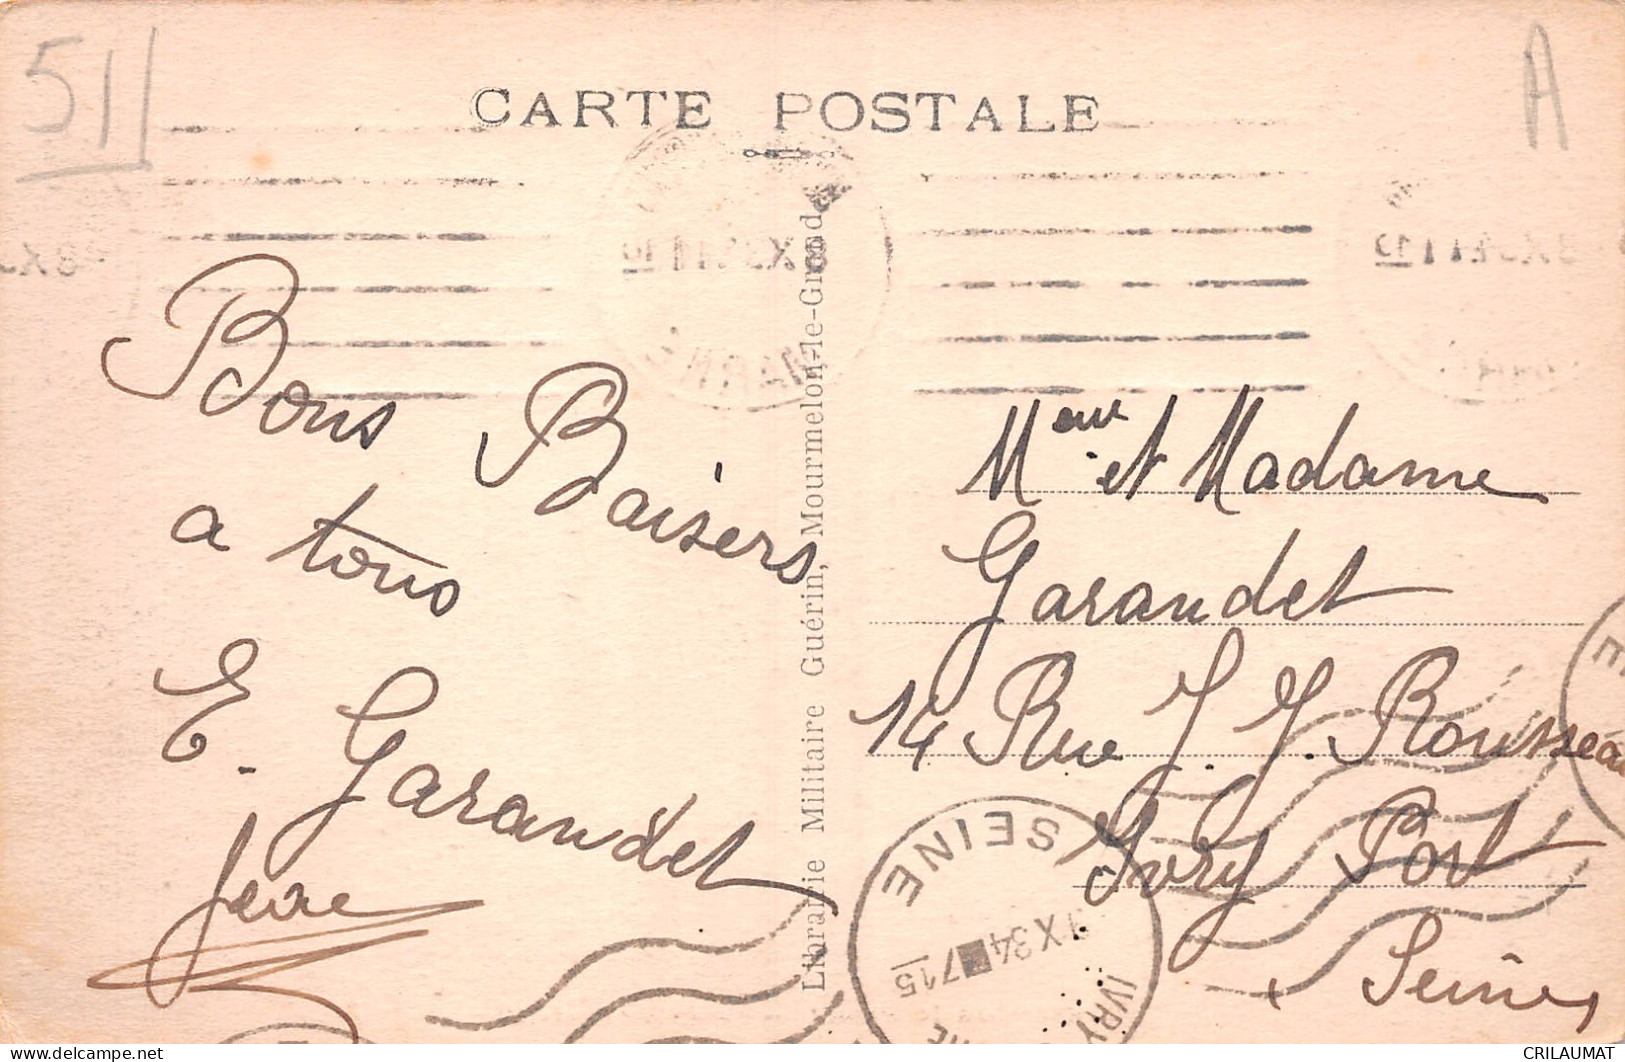 511
A
CARTE POSTALE
Bons Baisers
a tous
E. Garandet
Librairie Militaire Guérin, Mourmelon-le-Grand
Meur et Madame
Garandet
14 Rue J. J. Rousseau
Ivry Port
Seine
SEINE
X 34 715
IVRY
CRILAUMAT